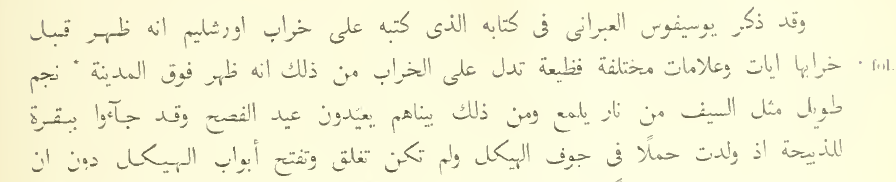 وقد ذكر يوسيفوس العبرانى فى كتابه الذى كتبه على خراب اورشاليم انه ظهر قبل
خرابها ايات وعلامات مختلفة فظيعة تدل على الخراب من ذلك انه ظهر فوق المدينة * نجم * fol.
طويل مثل السيف من نار يلمع ومن ذلك بيناهم يعيّدون عيد الفصح وقد جآءوا ببقرة
للذبيحة اذ ولدت حملًا فى جوف الهيكل ولم تكن تغلق وتفتح أبواب الهيكل دون ان